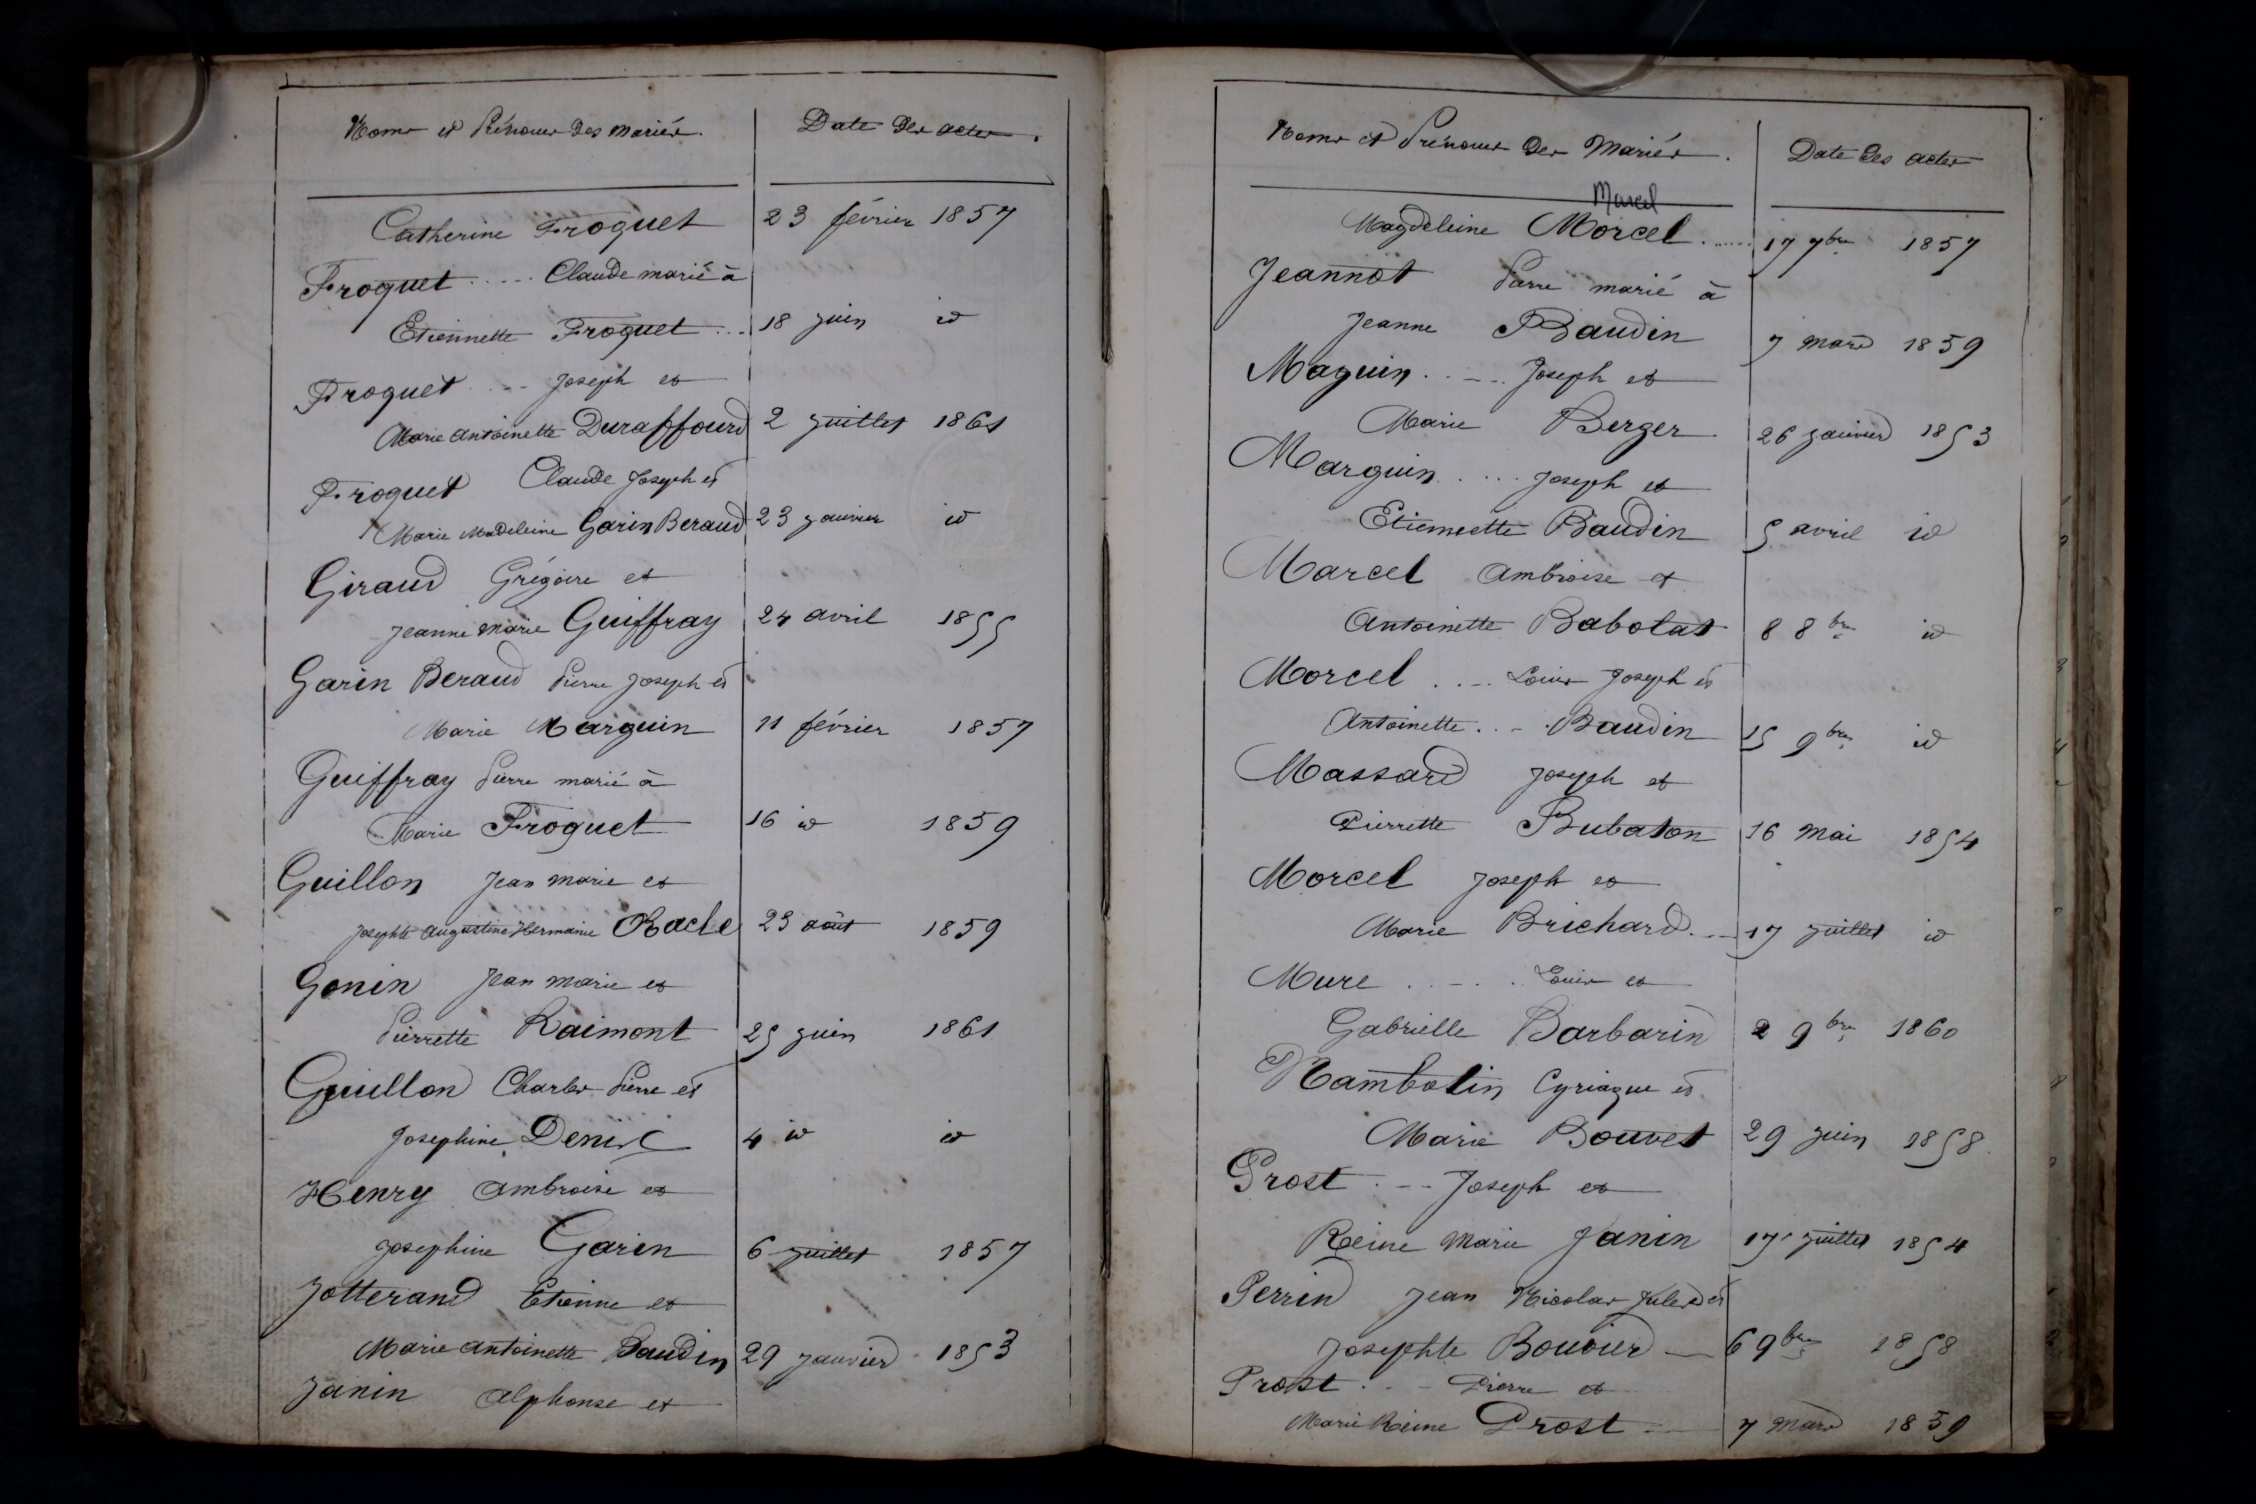 Noms et Prénoms des mariés. Date des actes.
Catherine Froquet 23 février 1857
Froquet ..... Claude marié à
Etiennette Froquet ... 18 juin id
Froquet ... Joseph et
Marie Antoinette Duraffourd 2 juillet 1861
Froquet Claude Joseph et
Marie Madeleine Garin Beraud 23 janvier id
Giraud Grégoire et
Jeanne Marie Guiffray 24 avril 1855
Garin Beraud Pierre Joseph et
Marie Marguin 11 février 1857
Guiffray Pierre marié à
Marie Froquet 16 id 1859
Guillon Jean Marie et
Josephte Augustine Hermanie Racle 23 août 1859
Gonin Jean Marie et
Pierrette Raimont 25 juin 1861
Guillon Charles Pierre et
Josephine Denise 4 id id
Henry Ambroise et
Josephine Garin 6 juillet 1857
Jotterand Etienne et
Marie Antoinette Baudin 29 janvier 1853
Janin Alphonse et
Noms et Prénoms des Mariés. Date des actes
Marcel
Magdeleine Morcel ...... 17 7bre 1857
Jeannot Pierre marié à
Jeanne Baudin 7 mars 1859
Maguin ..... Joseph et
Marie Berger 26 janvier 1853
Marguin ..... Joseph et
Etiennette Baudin 5 avril id
Marcel Ambroise et
Antoinette Babolat 8 8bre id
Morcel .... Louis Joseph et
Antoinette ... Baudin 15 9bre id
Massard Joseph et
Pierrette Bubaton 16 mai 1854
Morcel Joseph et
Marie Brichard ... 17 juillet id
Mure ..... Louis et
Gabrielle Barbarin 2 9bre 1860
Nambotin Cyriaque et
Marie Bouvet 29 juin 1858
Prost ... Joseph et
Reine Marie Janin 17 juillet 1854
Perrin Jean Nicolas Jules et
Josephte Bouvier — 6 9bre 1858
Prost ... Pierre et
Marie Reine Prost ... 7 mars 1859